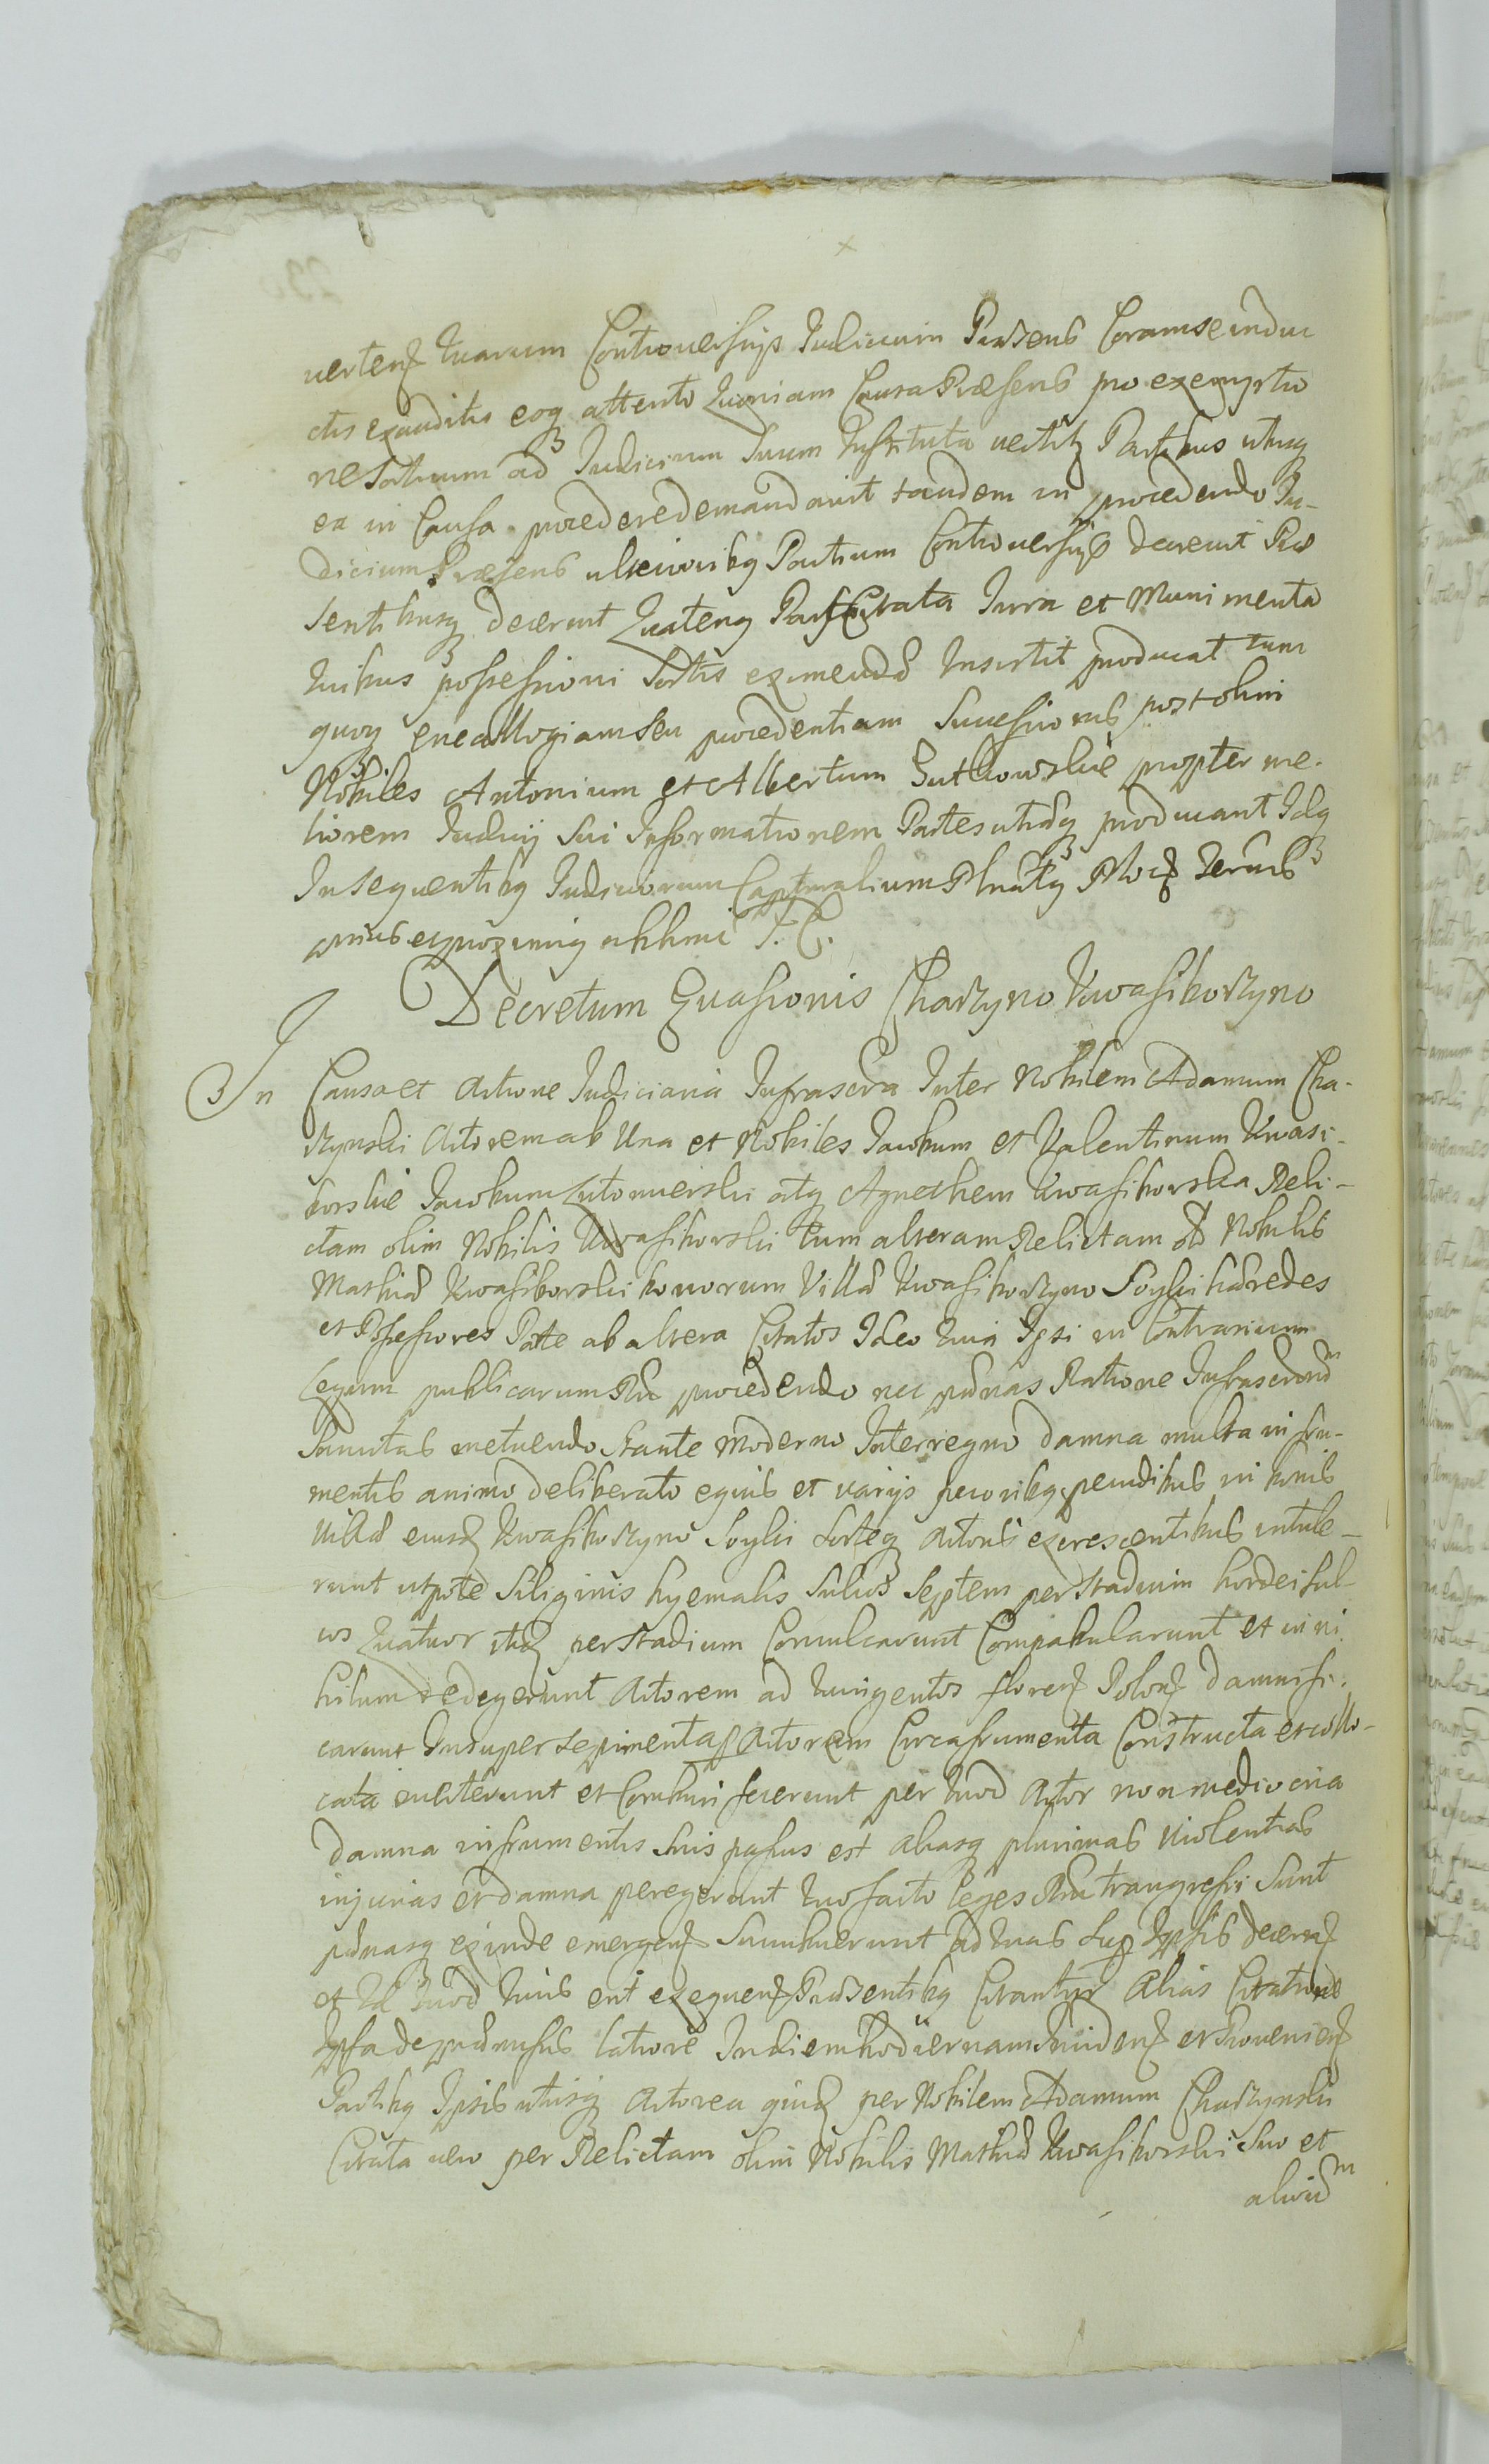 uertenẜ Quarum Controuersijs Judicium Præsens Coram se indu
ctis exauditis eoq attento Quoniam Causa Præsens pro exemptio
ne Sortium ad Judicium Suum Instituta Partibus utrisq
ea in Causa procedere demandauit tandem in procedendo Ju-
dicium Præsens ulterioribq Partium Controuersijs decreuit Præ
sentibusq decernit Quatenq Pars Citata Jura et Munimenta
Quibus possessioni Sortis eximendæ Insistit producat tum
quoq genealogiam seu procedentiam Successionis post olim
Nobiles Antonium et Albertum Gutkowskie propter me-
liorem Judicij Sui Informationem Partes utræq producant Idq
In sequentibq Judiciorum Capturalium Plocẜ Terminis
et proximiq
Decretum Euasionis Charzyno Kwasiborzyno
In Causa et Actione Judiciaria Infrascrpta Inter Nobilem Adamum Cha-
rzynski Actorem ab Una et Nobiles Jacobum et Valentinum Kwasi-
borskie Jacobum Lutomierski atq Agnethem Kwasiborska Reli-
ctam olim Nobilis Kwasiborski tum alteram Relictam olim Nobilis
Mathiæ Kwasiborski bonorum Villæ Kwasiborzyno Soyki hæredes
et Possessores Parte ab altera Citatos Ideo Quia Ipsi in Contrarium
Legum publicarum Rni procedendo nec pænas Ratione Infrascrptorum
Sancitas metuendo Stante Moderno Interregno damna multa in fru-
mentis animo deliberato equis et varijs pecoribq pecudibus in bonis
Villæ eiusẜ Kwasiborzyno Soyki Sorteq Actoris excrescentibus intule-
runt utpote Siliginis hyemalis Sulcos Septem per Stadium hordei Sul-
cos Quatuor itiẜ per Stadium Conculcarunt Compabularunt et in ni
hilum redegerunt Actorem ad Quingentos florenẜ Polonẜ damnifi-
carunt Insuper sepimenta p Actorem Circa frumenta Constructa et collo-
cata euerterunt et Comburi fecerunt per Quod Actor non mediocria
damna in frumentis Suis passus est aliasq plurimas Violentias
injurias et damna peregerunt Quo facto leges Rni transgressi Sunt
pænasq exinde emergenẜ Succubuerunt ad Quas Sup Ipsis decernẜ
et Id Quod Juris erit exequenẜ Præsentibq Citantur Alias Citatione
Ipsa de præmissis latiore In diem hodiernam Inciden et Prouenienẜ
Partibq Ipsis utrisq Actorea quiẜ per Nobilem Adamum Charzynski
Citata uero per Relictam olim Nobilis Mathiæ Kwasiborski Suo et
aliorum